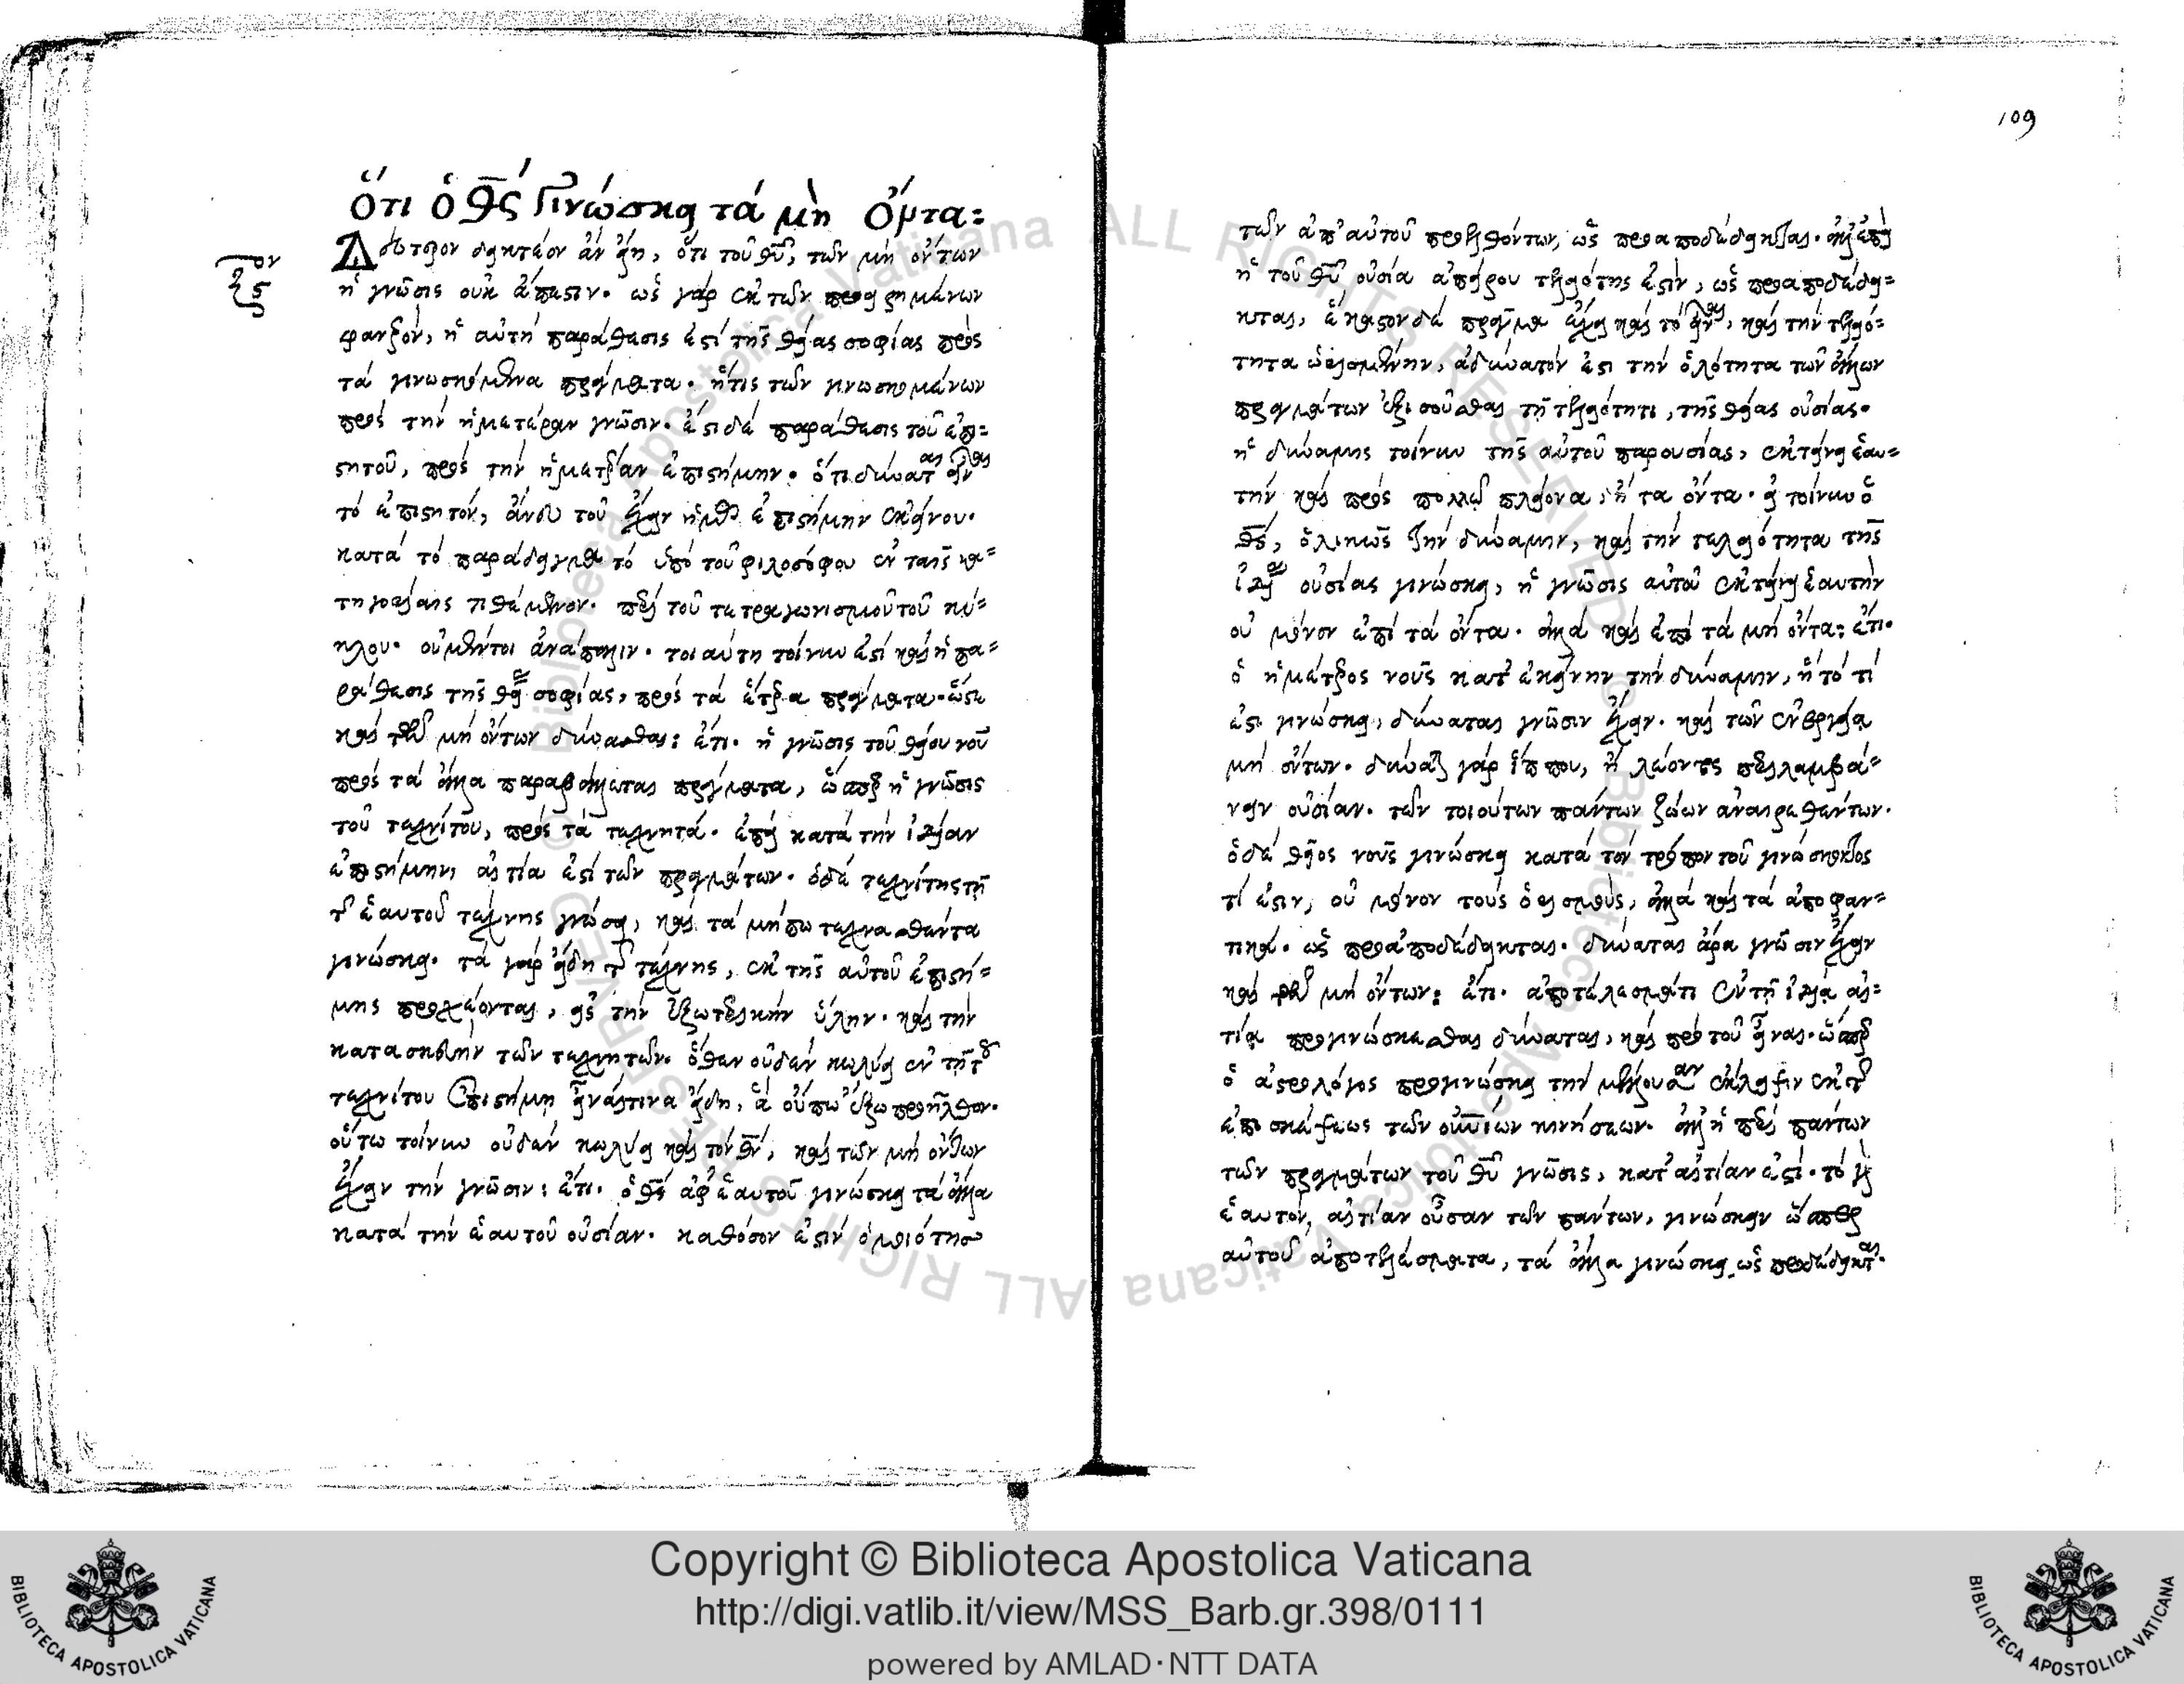 109
ὅτι ὁ θς γινώσκει τὰ μὴ ὄντα:
ξς ον
Δεύτερον δεικτέον ἂν εἴη, ὅτι τοῦ θυ, τῶν μὴ ὄντων
ἡ γνῶσις οὐκ ἄπεστιν. ὡς γὰρ ἐκ τῶν προειρημένων
φανερόν, ἡ αὐτὴ παράθεσις ἐστὶ τῆς θείας σοφίας πρὸς
τὰ γινωσκόμενα πράγματα. ἥτις τῶν γινωσκομένων
πρὸς τὴν ἡμετέραν γνῶσιν. ἔστι δὲ παράθεσις τοῦ ἐπι=
στητοῦ, πρὸς τὴν ἡμετέραν ἐπιστήμην. ὅτι δύναται εἶναι
τὸ ἐπιστητόν, ἄνευ τοῦ ἔχειν ἡμᾶς ἐπιστήμην ἐκείνου.
κατὰ τὸ παράδειγμα τὸ ὑπὸ τοῦ φιλοσόφου ἐν ταῖς κα=
τηγορίαις τιθέμενον. περὶ τοῦ τετραγωνισμοῦ τοῦ κύ=
κλου. οὐ μέντοι ἀνάπαλιν. τοιαύτη τοίνυν ἐστὶ καὶ ἡ πα=
ράθεσις τῆς θείας σοφίας, πρὸς τὰ ἕτερα πράγματα. ὥστε
καὶ τῶν μὴ ὄντων δύνασθαι: ἔτι. ἡ γνῶσις τοῦ θείου νοῦ
πρὸς τὰ ἄλλα παραβάλλεται πράγματα, ὥσπερ ἡ γνῶσις
τοῦ τεχνίτου, πρὸς τὰ τεχνητά. ἐπεὶ κατὰ τὴν ἰδίαν
ἐπιστήμην, αἰτία ἐστὶ τῶν πραγμάτων. ὁ δὲ τεχνίτης τῇ
τῆς ἑαυτοῦ τέχνης γνώσει, καὶ τὰ μήπω τεχνασθέντα
γινώσκει. τὰ γὰρ εἴδη τῆς τέχνης, ἐκ τῆς αὐτοῦ ἐπιστή=
μης προχέονται, εἰς τὴν ἐξωτερικὴν ὕλην. καὶ τὴν
κατασκευὴν τῶν τεχνητῶν. ὅθεν οὐδὲν κωλύει ἐν τῇ τοῦ
τεχνίτου ἐπιστήμῃ εἶναί τινα εἴδη, ἃ οὔπω ἔξω προῆλθον.
οὕτω τοίνυν οὐδὲν κωλύει καὶ τὸν θν, καὶ τῶν μὴ ὄντων
ἔχειν τὴν γνῶσιν: ἔτι. ὁ θς ἀφ' ἑαυτοῦ γινώσκει τὰ ἄλλα
κατὰ τὴν ἑαυτοῦ οὐσίαν. καθόσον ἐστὶν ὁμοιότης
τῶν ἀπ' αὐτοῦ προελθόντων, ὡς προαποδέδεικται. ἀλλ' ἐπεὶ
ἡ τοῦ θυ οὐσία ἀπείρου τελειότης ἐστὶν, ὡς προαποδέδει=
κται, ἕκαστον δὲ πρᾶγμα ἔχει καὶ τὸ εἶναι, καὶ τὴν τελειό=
τητα ὡρισμένην, ἀδύνατόν ἐστι τὴν ὁλότητα τῶν ἄλλων
πραγμάτων ἐξισοῦσθαι τῇ τελειότητι, τῆς θείας οὐσίας.
ἡ δύναμις τοίνυν τῆς αὐτοῦ παρουσίας, ἐκτείνει ἑαυ=
τὴν καὶ πρὸς πολλῷ πλείονα, ἢ τὰ ὄντα. εἰ τοίνυν ὁ
θς, ὁλικῶς τὴν δύναμιν, καὶ τὴν τελειότητα τῆς
ἰδίας οὐσίας γινώσκει, ἡ γνῶσις αὐτοῦ ἐκτείνει ἑαυτὴν
οὐ μόνον ἐπὶ τὰ ὄντα. ἀλλὰ καὶ ἐπὶ τὰ μὴ ὄντα: ἔτι.
ὁ ἡμέτερος νοῦς κατ' ἐκείνην τὴν δύναμιν, ᾗ τὸ τί
ἐστι γινώσκει, δύναται γνῶσιν ἔχειν. καὶ τῶν ἐνεργείᾳ
μὴ ὄντων. δύναται γὰρ ἵππου, ἢ λέοντος περιλαμβά=
νειν οὐσίαν. τῶν τοιούτων πάντων ζώων ἀναιρεθέντων.
ὁ δὲ θεῖος νοῦς γινώσκει κατὰ τὸν τρόπον τοῦ γινώσκοντος
τί ἐστιν, οὐ μόνον τοὺς ὁρισμοὺς, ἀλλὰ καὶ τὰ ἀποφαν=
τικά. ὡς προαποδέδεικται. δύναται ἄρα γνῶσιν ἔχειν
καὶ τῶν μὴ ὄντων: ἔτι. ἀποτέλεσμά τι ἐν τῇ ἰδίᾳ αἰ=
τίᾳ προγινώσκεσθαι δύναται, καὶ πρὸ τοῦ εἶναι. ὥσπερ
ὁ ἀστρολόγος προγινώσκει τὴν μέλλουσαν ἔκλειψιν ἐκ τῆς
ἐπισκέψεως τῶν οὐνίων κινήσεων. ἀλλ' ἡ περὶ πάντων
τῶν πραγμάτων τοῦ θυ γνῶσις, κατ' αἰτίαν ἐστί. τῷ γὰρ
ἑαυτόν, αἰτίαν οὖσαν τῶν πάντων, γινώσκειν ὥσπερ
αὐτοῦ ἀποτελέσματα, τὰ ἄλλα γινώσκει, ὡς προδέδεικται.
Copyright © Biblioteca Apostolica Vaticana
http://digi.vatlib.it/view/MSS_Barb.gr.398/0111
powered by AMLAD·NTT DATA
BIBLIOTECA APOSTOLICA VATICANA
BIBLIOTECA APOSTOLICA VATICANA
© Biblioteca Apostolica Vaticana ALL RIGHTS RESERVED